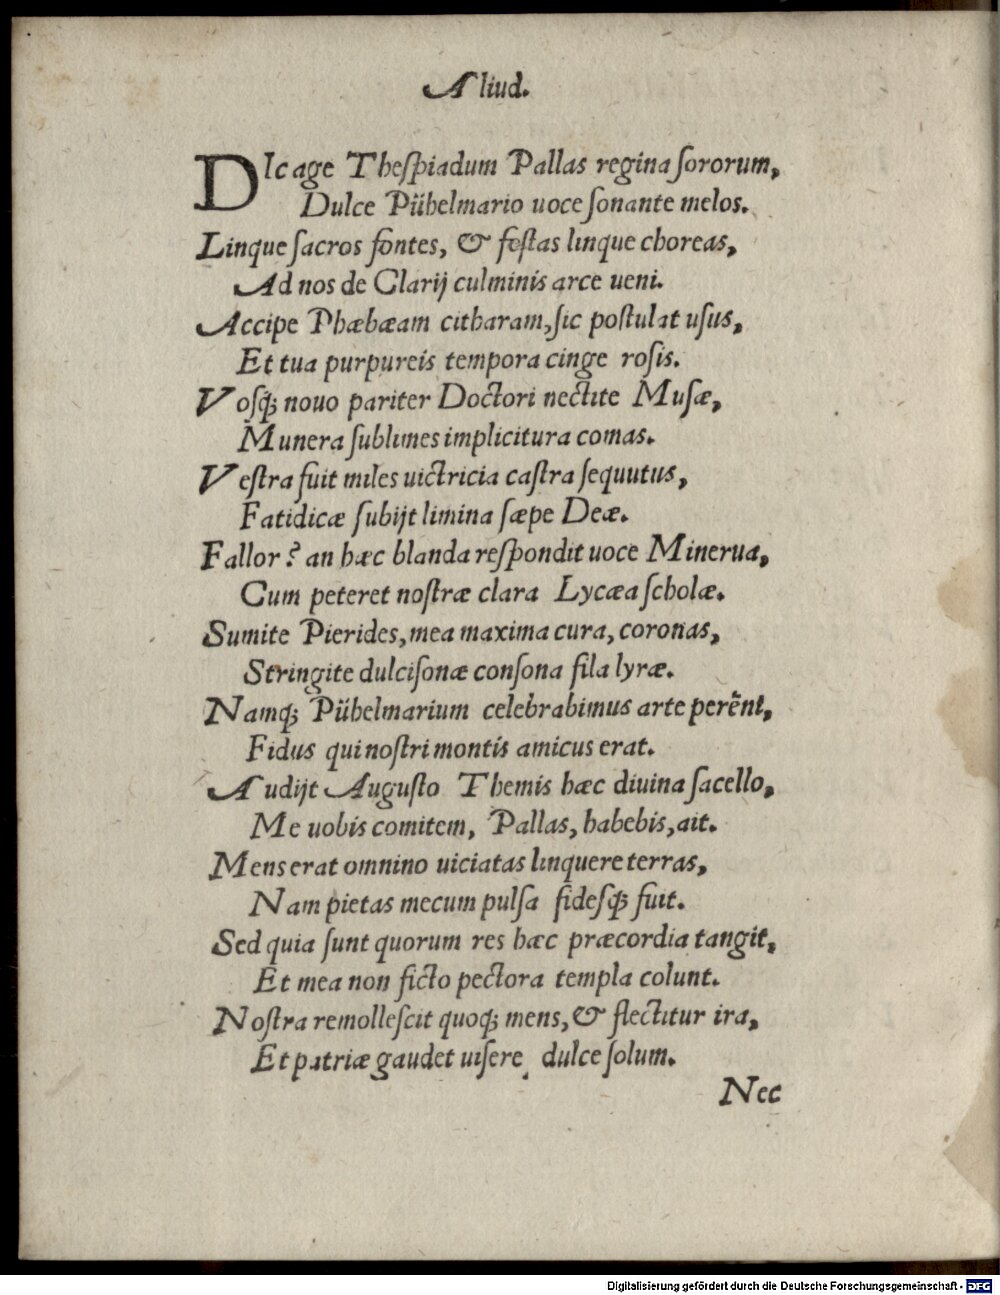 Aliud.
DIc age Theſpiadum Pallas regina ſororum,
Dulce Pühelmario uoce ſonante melos.
Linque ſacros fontes, & feſtas linque choreas,
Ad nos de Clarij culminis arce ueni.
Accipe Phæbæam citharam, ſic poſtulat uſus,
Et tua purpureis tempora cinge roſis.
Voſq; nouo pariter Doctori nectite Muſæ,
Munera ſublimes implicitura comas.
Veſtra fuit miles uictricia caſtra ſequutus,
Fatidicæ ſubijt limina ſæpe Deæ.
Fallor? an hæc blanda reſpondit uoce Minerua,
Cum peteret noſtræ clara Lycæa ſcholæ.
Sumite Pierides, mea maxima cura, coronas,
Stringite dulciſonæ conſona fila lyræ.
Namq; Pühelmarium celebrabimus arte perẽni,
Fidus qui noſtri montis amicus erat.
Audijt Auguſto Themis hæc diuina ſacello,
Me uobis comitem, Pallas, habebis, ait.
Mens erat omnino uiciatas linquere terras,
Nam pietas mecum pulſa fideſq; fuit.
Sed quia ſunt quorum res hæc præcordia tangit,
Et mea non ficto pectora templa colunt.
Noſtra remolleſcit quoq; mens, & flectitur ira,
Et patriæ gaudet uiſere dulce ſolum.
Nec
Digitalisierung gefördert durch die Deutsche Forschungsgemeinschaft - DFG